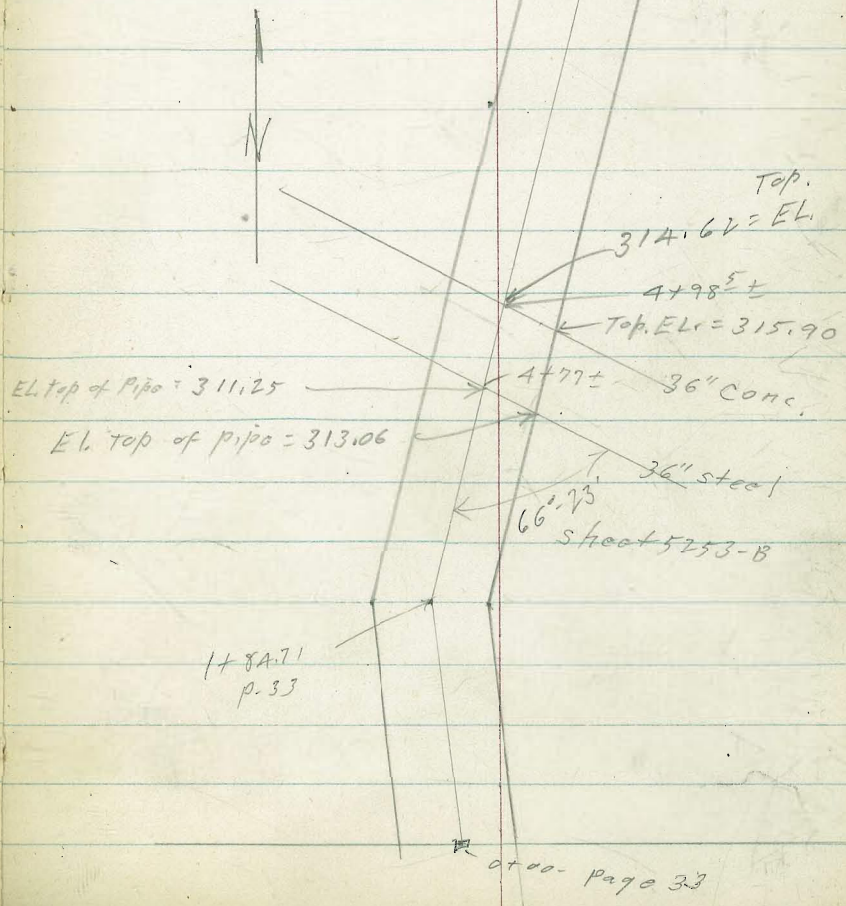 N
Top.
314.62 = EL.
4+98⁵ ±
Top. EL. = 315.90
36" Conc.
4+77±
El. top of Pipe = 311.25
El. top of pipe = 313.06
36" steel
66°-23'
sheet 5253-B
1+84.71
p. 33
0+00- page 33